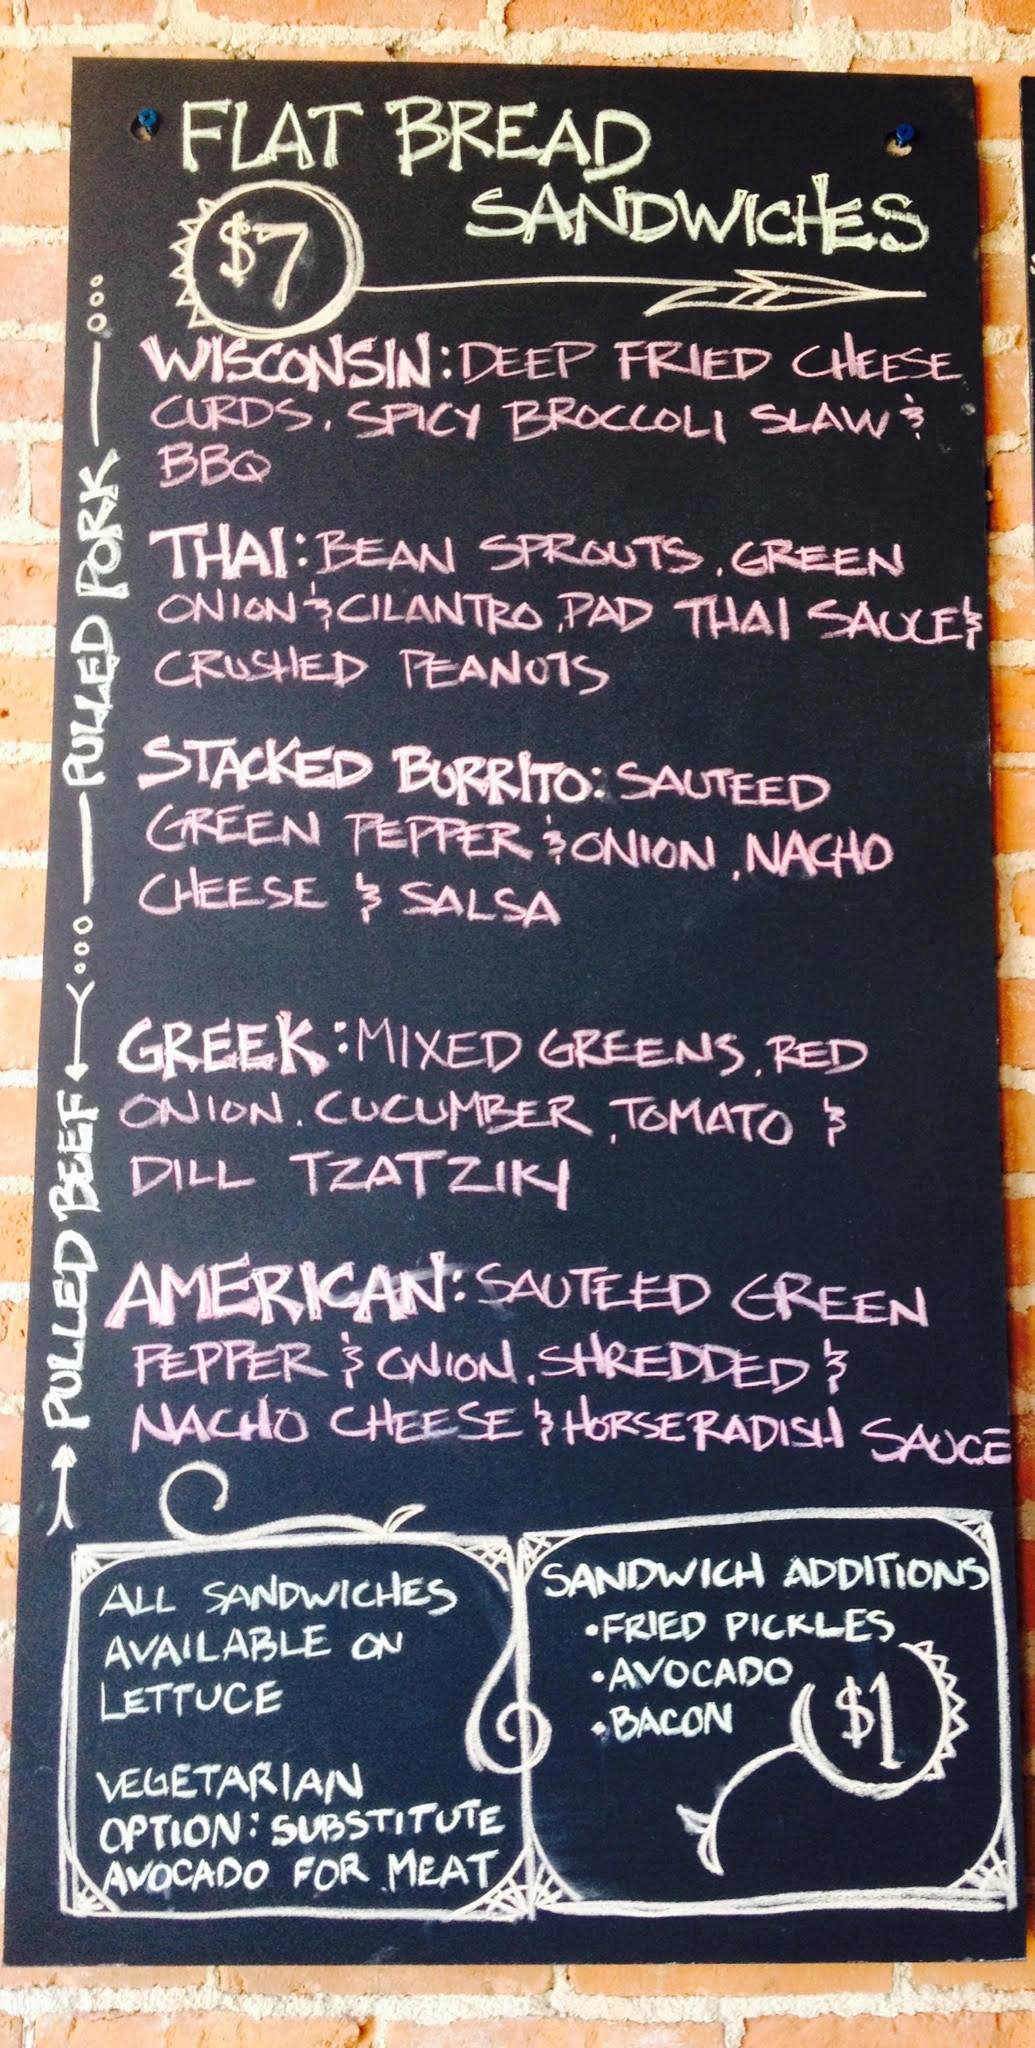 FLAT BREAD
SANDWICHES
$7
PULLED PORK
WISCONSIN: DEEP FRIED CHEESE
CURDS, SPICY BROCCOLI SLAW &
BBQ
THAI: BEAN SPROUTS, GREEN
ONION & CILANTRO, PAD THAI SAUCE &
CRUSHED PEANUTS
STACKED BURRITO: SAUTEED
GREEN PEPPER & ONION, NACHO
CHEESE & SALSA
PULLED BEEF
GREEK: MIXED GREENS, RED
ONION, CUCUMBER, TOMATO &
DILL TZATZIKI
AMERICAN: SAUTEED GREEN
PEPPER & ONION, SHREDDED &
NACHO CHEESE & HORSERADISH SAUCE
ALL SANDWICHES
AVAILABLE ON
LETTUCE
VEGETARIAN
OPTION: SUBSTITUTE
AVOCADO FOR MEAT
SANDWICH ADDITIONS
•FRIED PICKLES
•AVOCADO
•BACON
$1